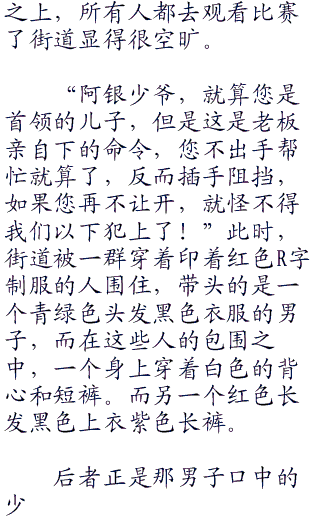 之上，所有人都去观看比赛
了街道显得很空旷。
“阿银少爷，就算您是
首领的儿子，但是这是老板
亲自下的命令，您不出手帮
忙就算了，反而插手阻挡，
如果您再不让开，就怪不得
我们以下犯上了！”此时，
街道被一群穿着印着红色R字
制服的人围住，带头的是一
个青绿色头发黑色衣服的男
子，而在这些人的包围之
中，一个身上穿着白色的背
心和短裤。而另一个红色长
发黑色上衣紫色长裤。
后者正是那男子口中的
少